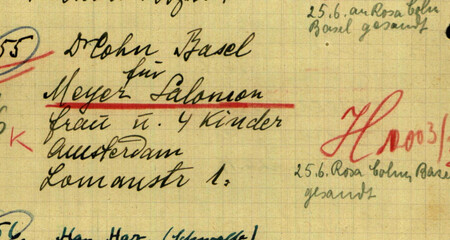 25.6. an Rosa Cohn
Basel gesandt
55 Dr Cohn Basel
für
Meyer Salomon
K
Frau u. 4 Kinder
Amsterdam
Lomanstr 1.
H 10003/
25.6. Rosa Cohn, Basel
gesandt
56. Han